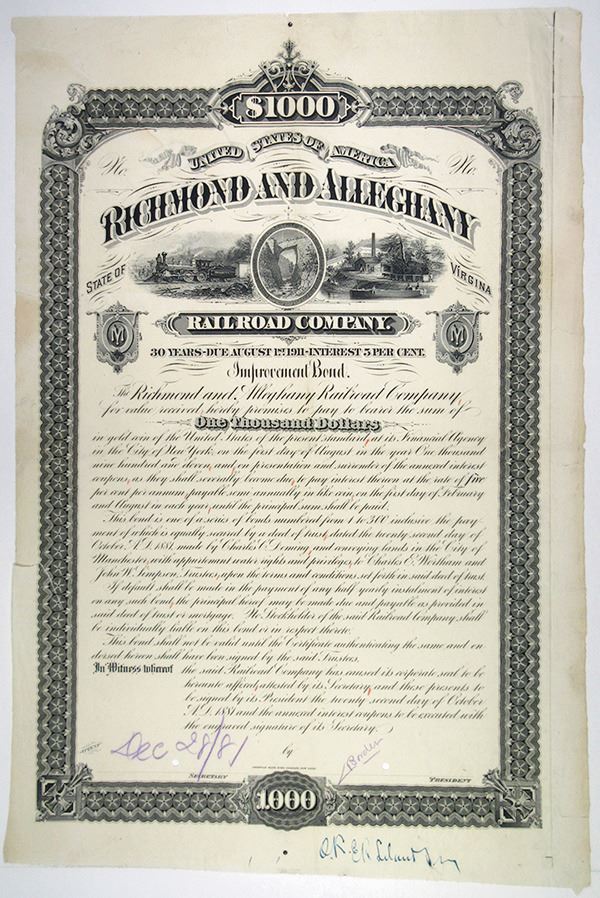 $1000
No.
No.
UNITED STATES OF AMERICA
RICHMOND AND ALLEGHANY
STATE OF
VIRGINIA
RAILROAD COMPANY.
M
M
30 YEARS-DUE AUGUST 1ST 1911-INTEREST 5 PER CENT.
Improvement Bond.
The Richmond and Alleghany Railroad Company,
for value received hereby promises to pay to bearer the sum of
One Thousand Dollars
in gold coin of the United States of the present standard, at its Financial Agency
in the City of New York, on the first day of August in the year One thousand
nine hundred and eleven, and on presentation and surrender of the annexed interest
coupons, as they shall severally become due, to pay interest thereon at the rate of five
per cent per annum, payable semi annually in like coin, on the first day of February
and August in each year, until the principal sum shall be paid.
This bond is one of a series of bonds numbered from 1 to 500 inclusive the pay-
ment of which is equally secured by a deed of trust, dated the twenty second day of
October, A.D. 1881, made by Charles C. Deming, and conveying lands in the City of
Manchester, with appurtenant water rights and privileges, to Charles E. Wortham and
John W. Simpson, Trustees, upon the terms and conditions set forth in said deed of trust.
If default shall be made in the payment of any half yearly instalment of interest
on any such bond, the principal hereof may be made due and payable as provided in
said deed of trust or mortgage. No Stockholder of the said Railroad Company, shall
be individually liable on this bond or in respect thereto.
This bond shall not be valid until the Certificate authenticating the same and en-
dorsed hereon shall have been signed by the said Trustees.
In Witness whereof the said Railroad Company has caused its corporate seal to be
hereunto affixed, attested by its Secretary, and these presents to
be signed by its President the twenty second day of October
A.D. 1881 and the annexed interest coupons to be executed with
the engraved signature of its Secretary.
ATTEST
Dec 28/81
by
Border
AMERICAN BANK NOTE COMPANY, NEW YORK
SECRETARY
PRESIDENT
1000
O.K.